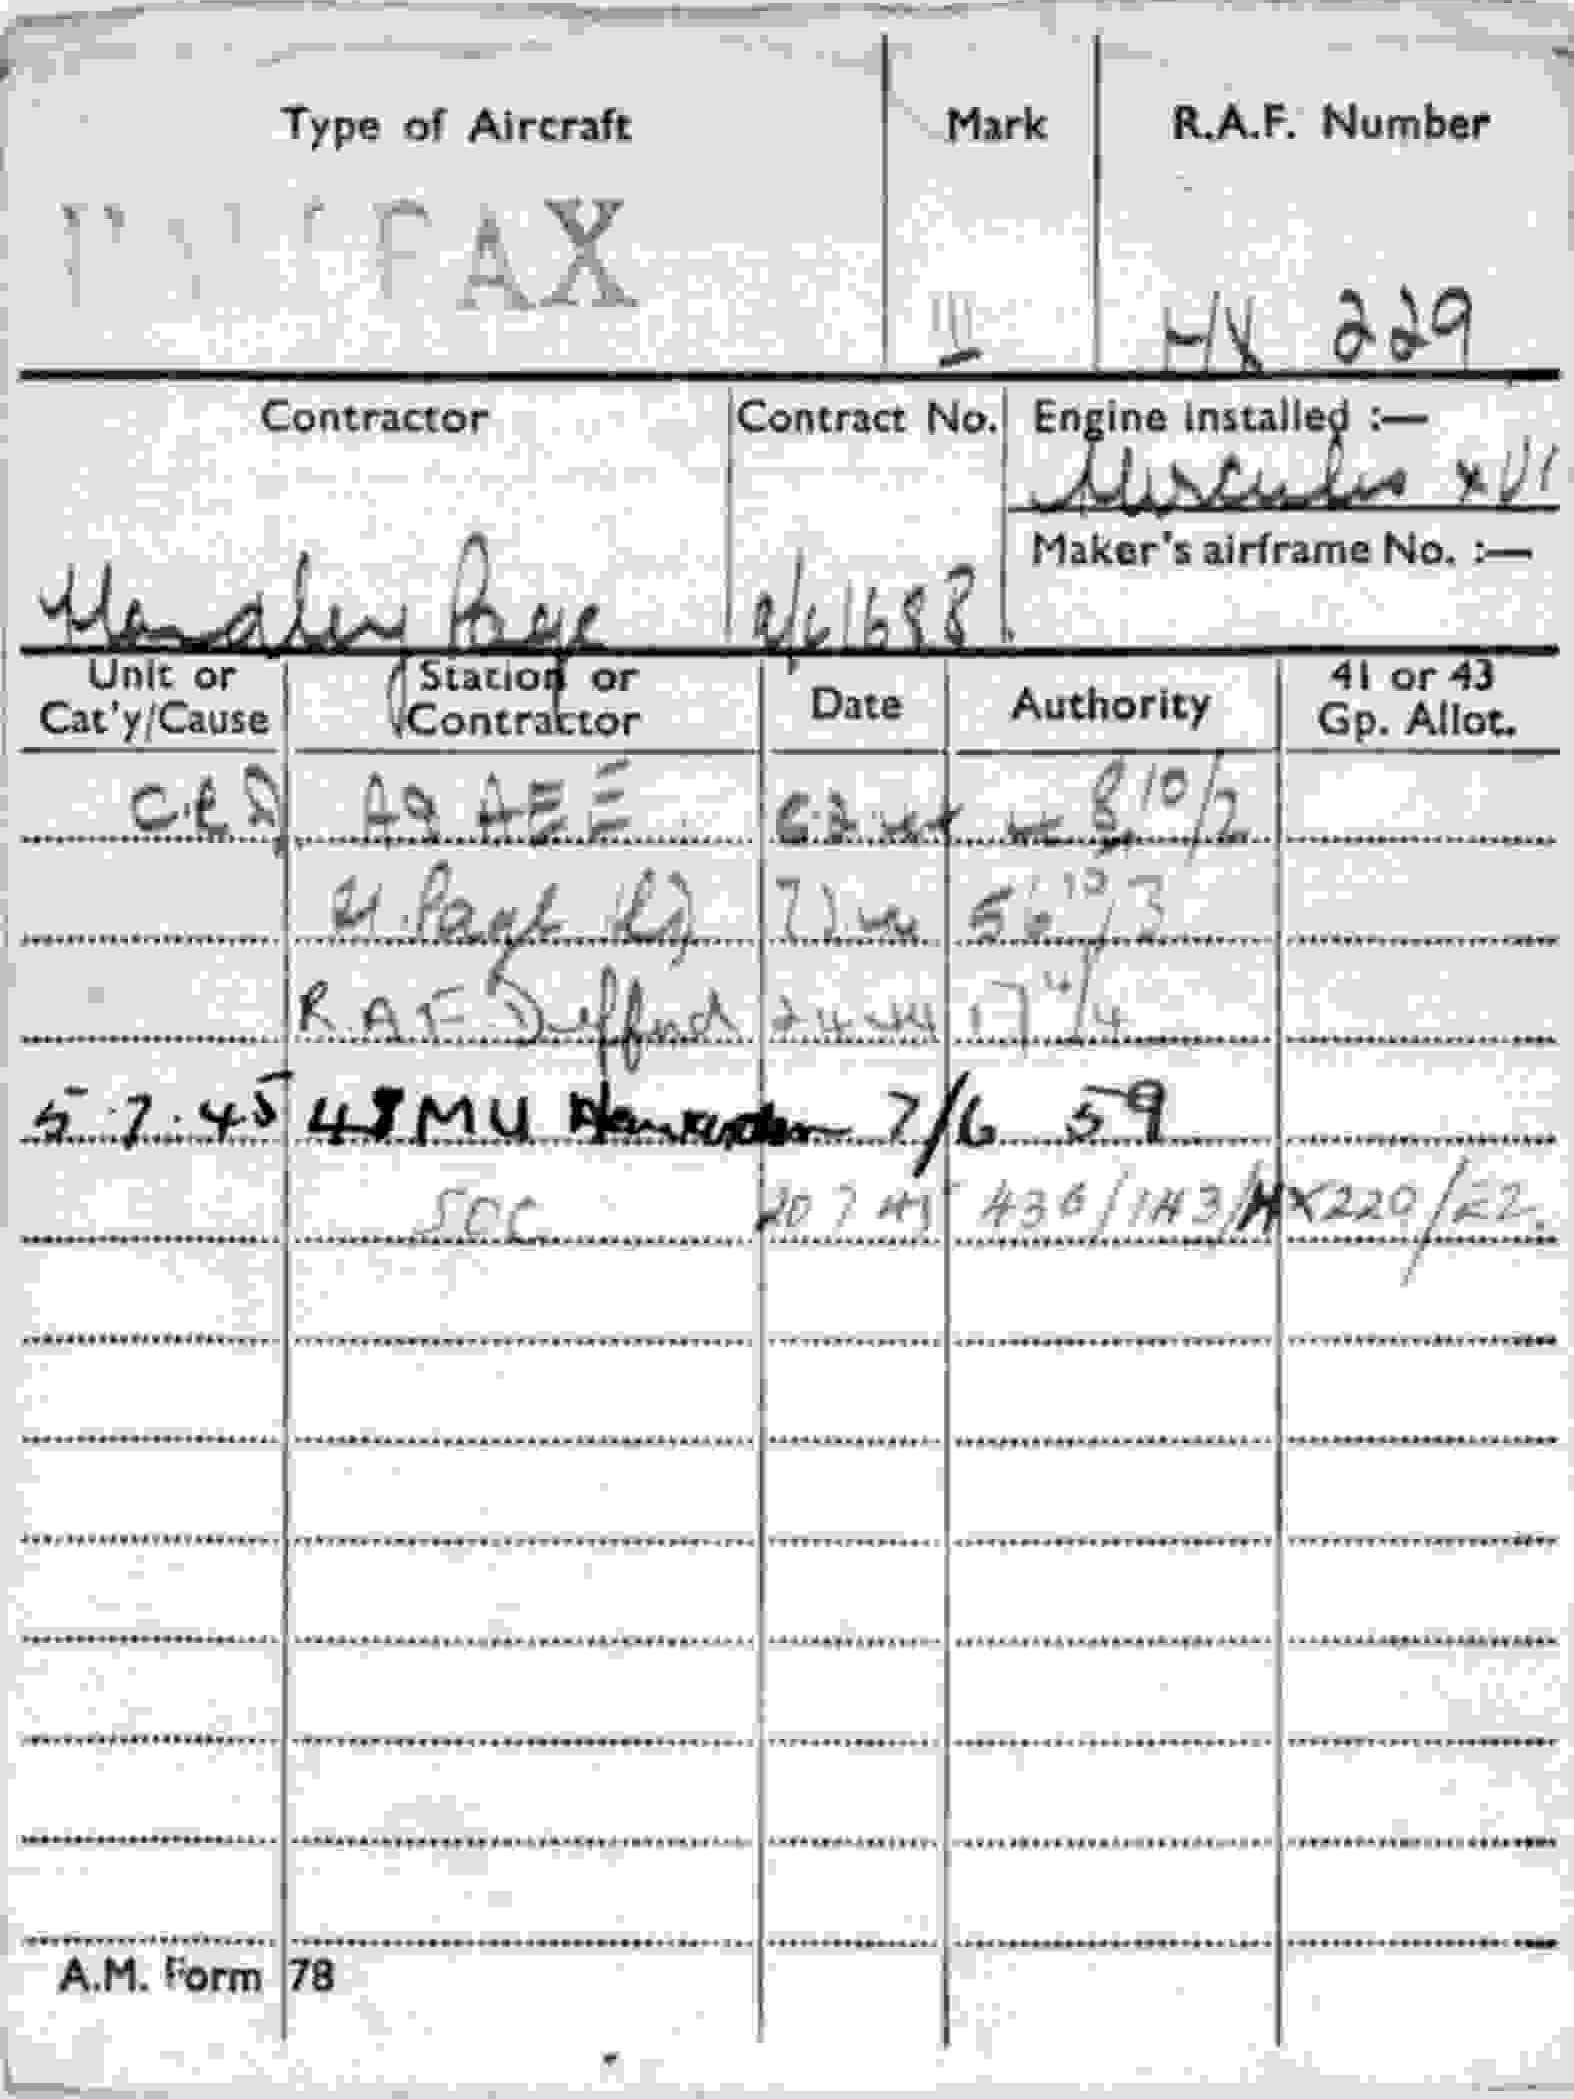 Type of Aircraft Mark R.A.F. Number
FAX III HX 229
Contractor Contract No. Engine installed :—
Hercules XVI
Maker's airframe No. :—
Handley Page
Unit or Cat'y/Cause Station or Contractor Date Authority 41 or 43 Gp. Allot.
A9 AEE 10/2
H. Page
R.A.F Defford 24 17 4/4
5.7.45 48 MU 7/6 59
SOC 20 7 45 436/143/HX220/E2.
A.M. Form 78